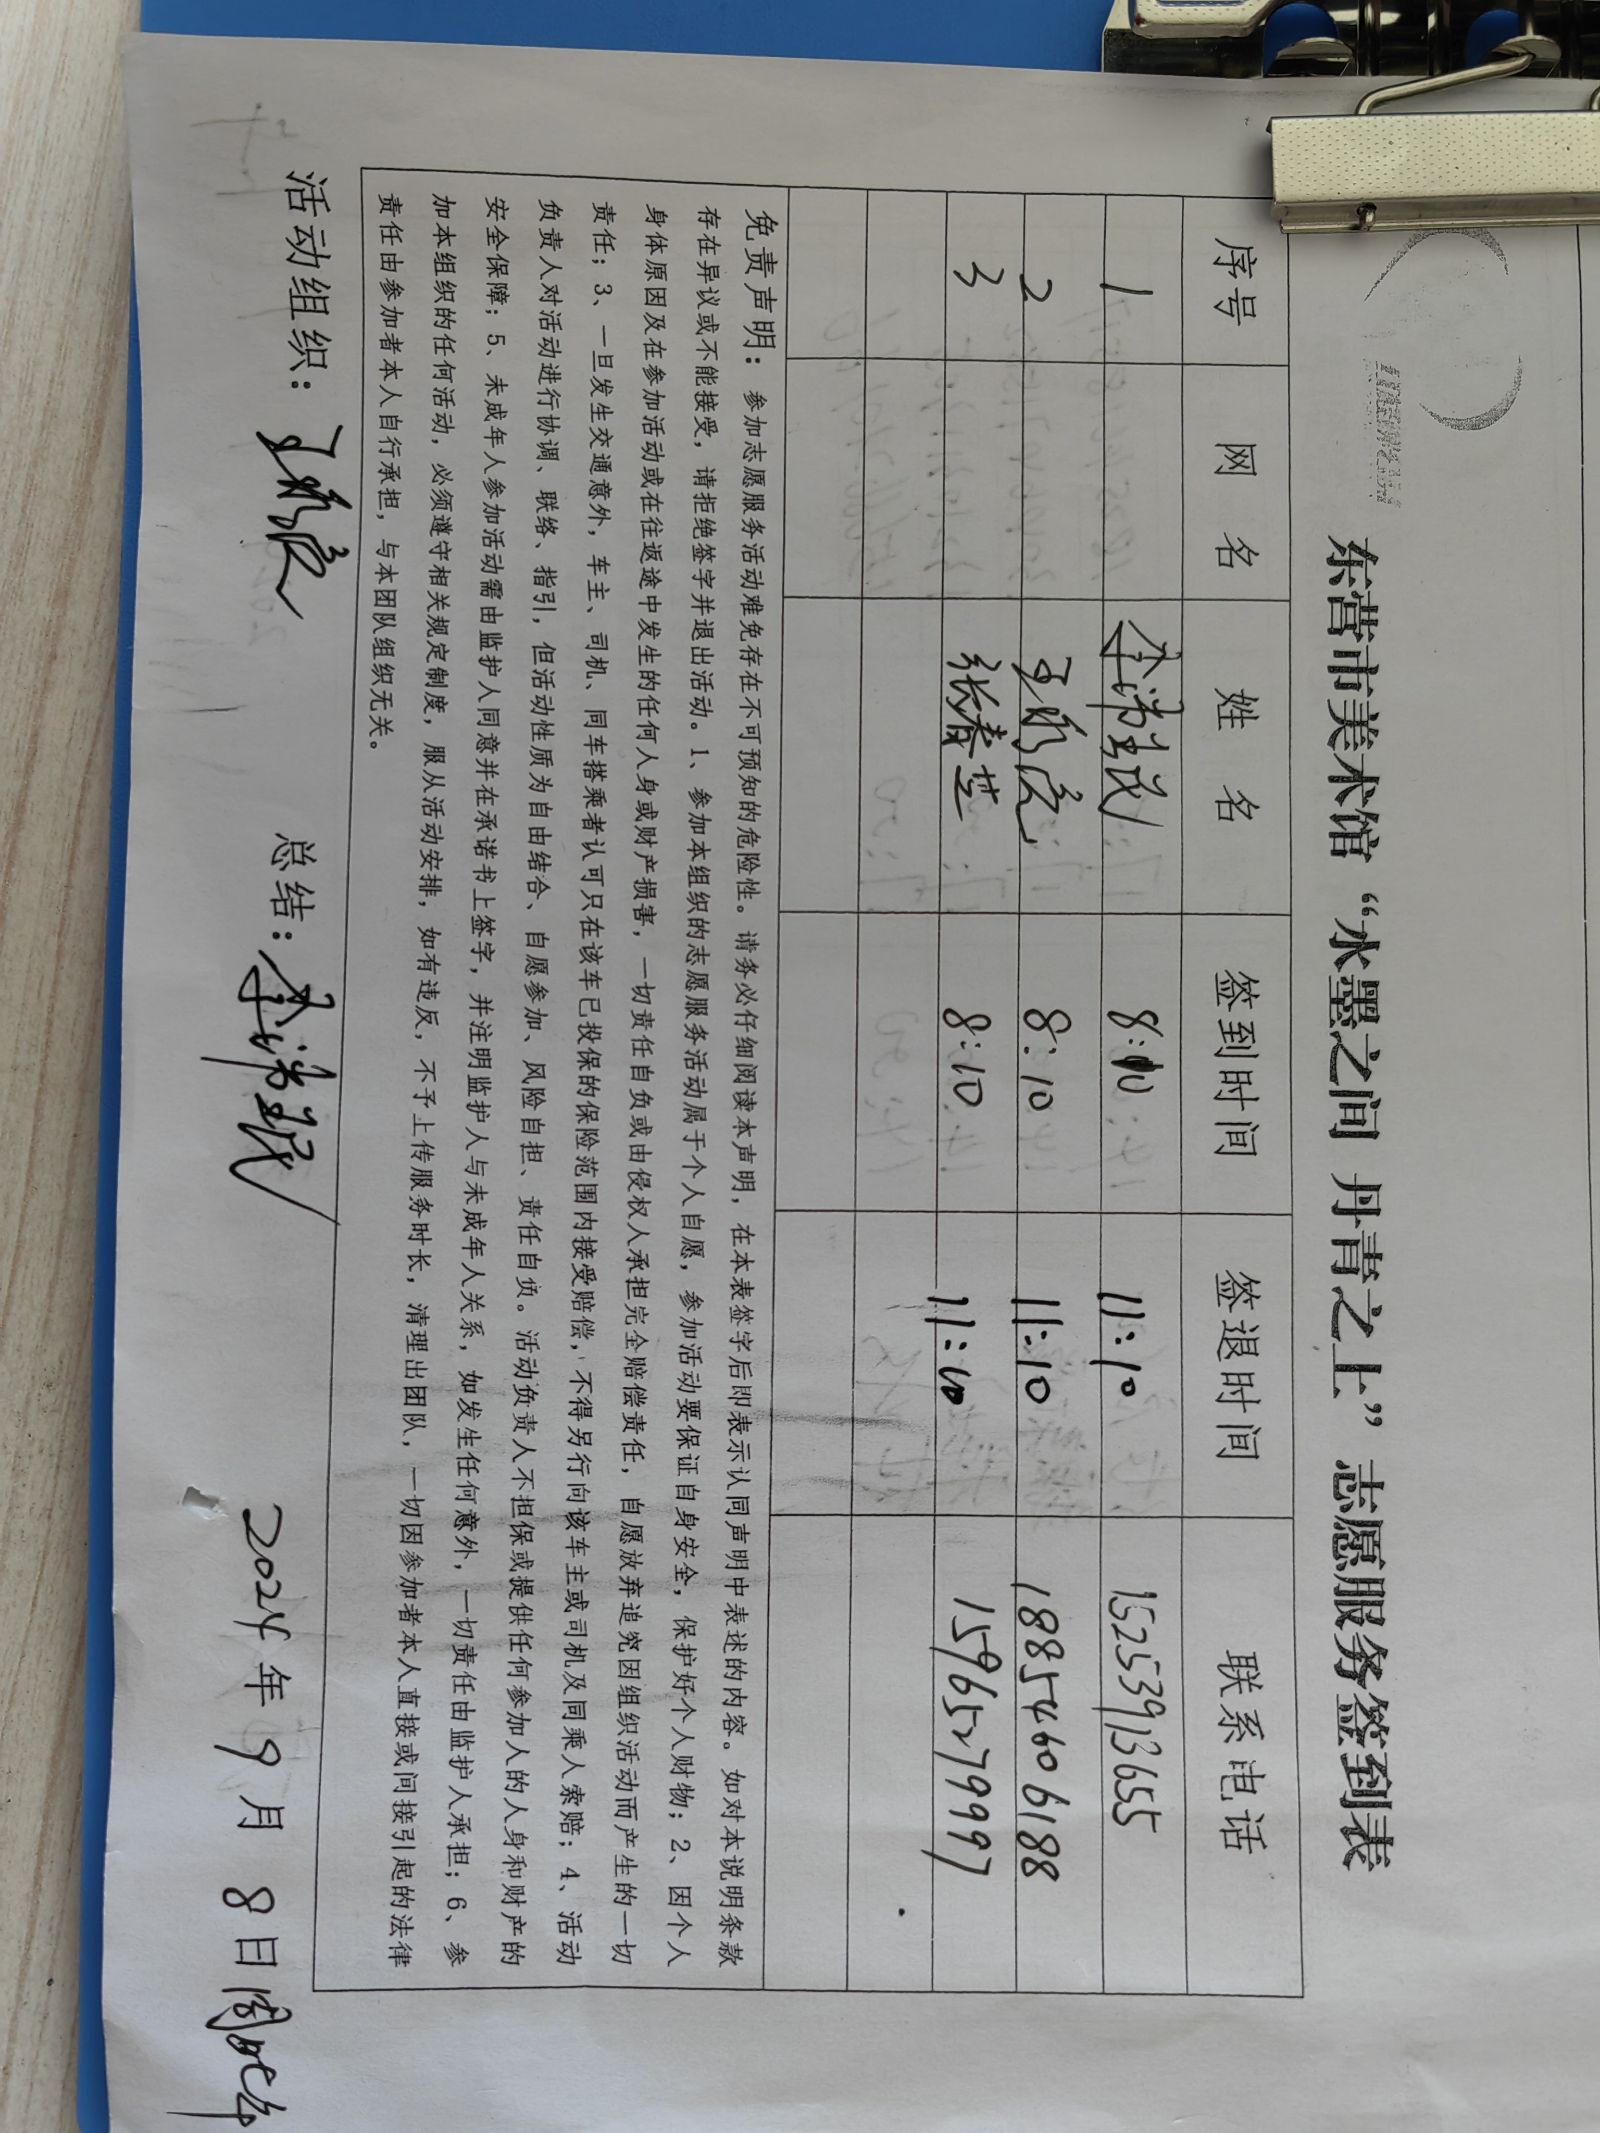 东营市美术馆“水墨之间 丹青之上”志愿服务签到表
序号 网 名 姓 名 签到时间 签退时间 联系电话
1 8:10 11:10 15253913655
2 8:10 11:10 18854606188
3 张春芝 8:10 11:10 15965279997
免责声明：参加志愿服务活动难免存在不可预知的危险性。请务必仔细阅读本声明，在本表签字后即表示认同声明中表述的内容。如对本说明条款
存在异议或不能接受，请拒绝签字并退出活动。1、参加本组织的志愿服务活动属于个人自愿，参加活动要保证自身安全，保护好个人财物；2、因个人
身体原因及在参加活动或在往返途中发生的任何人身或财产损害，一切责任自负或由侵权人承担完全赔偿责任，自愿放弃追究因组织活动而产生的一切
责任；3、一旦发生交通意外，车主、司机、同车搭乘者认可只在该车已投保的保险范围内接受赔偿，不得另行向该车主或司机及同乘人索赔；4、活动
负责人对活动进行协调、联络、指引，但活动性质为自由结合、自愿参加、风险自担、责任自负。活动负责人不担保或提供任何参加人的人身和财产的
安全保障；5、未成年人参加活动需由监护人同意并在承诺书上签字，并注明监护人与未成年人关系，如发生任何意外，一切责任由监护人承担；6、参
加本组织的任何活动，必须遵守相关规定制度，服从活动安排，如有违反，不予上传服务时长，清理出团队，一切因参加者本人直接或间接引起的法律
责任由参加者本人自行承担，与本团队组织无关。
活动组织： 总结： 2024年9月8日周